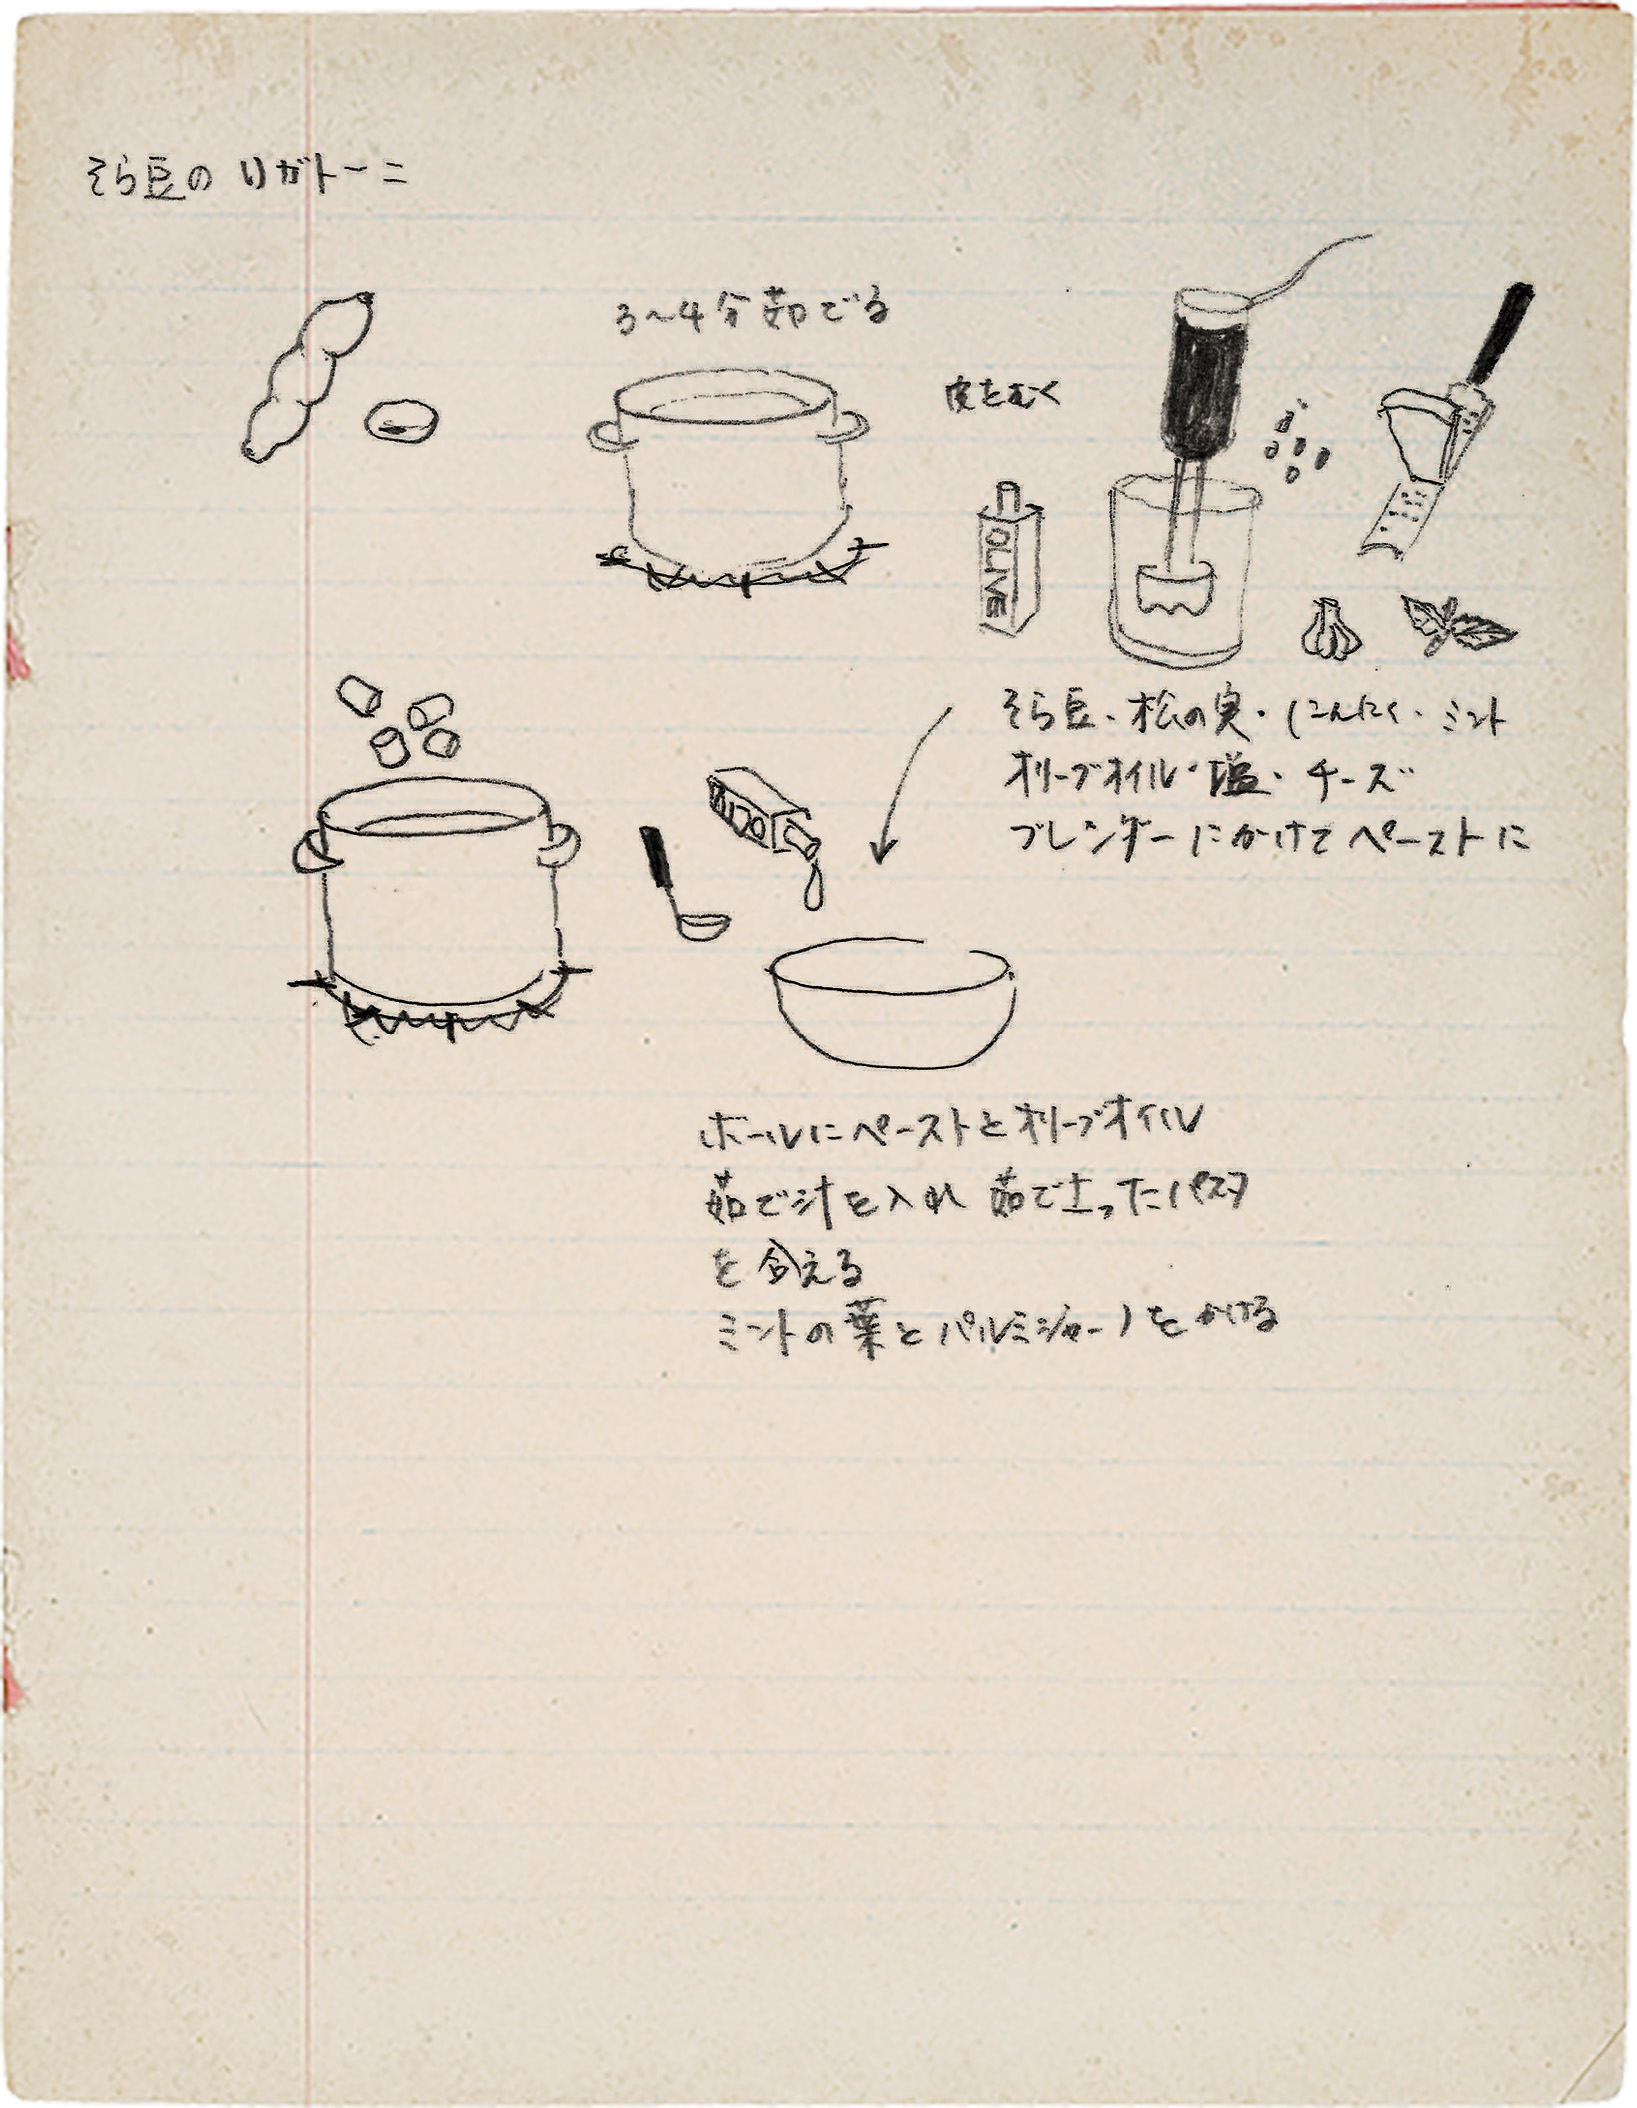 そら豆のリガトーニ
3~4分茹でる
皮をむく
OLIVE
そら豆・松の実・にんにく・ミント
オリーブオイル・塩・チーズ
ブレンダーにかけてペーストに
ボールにペーストとオリーブオイル
茹で汁を入れ 茹で上ったパスタ
を合える
ミントの葉とパルミジャーノをかける